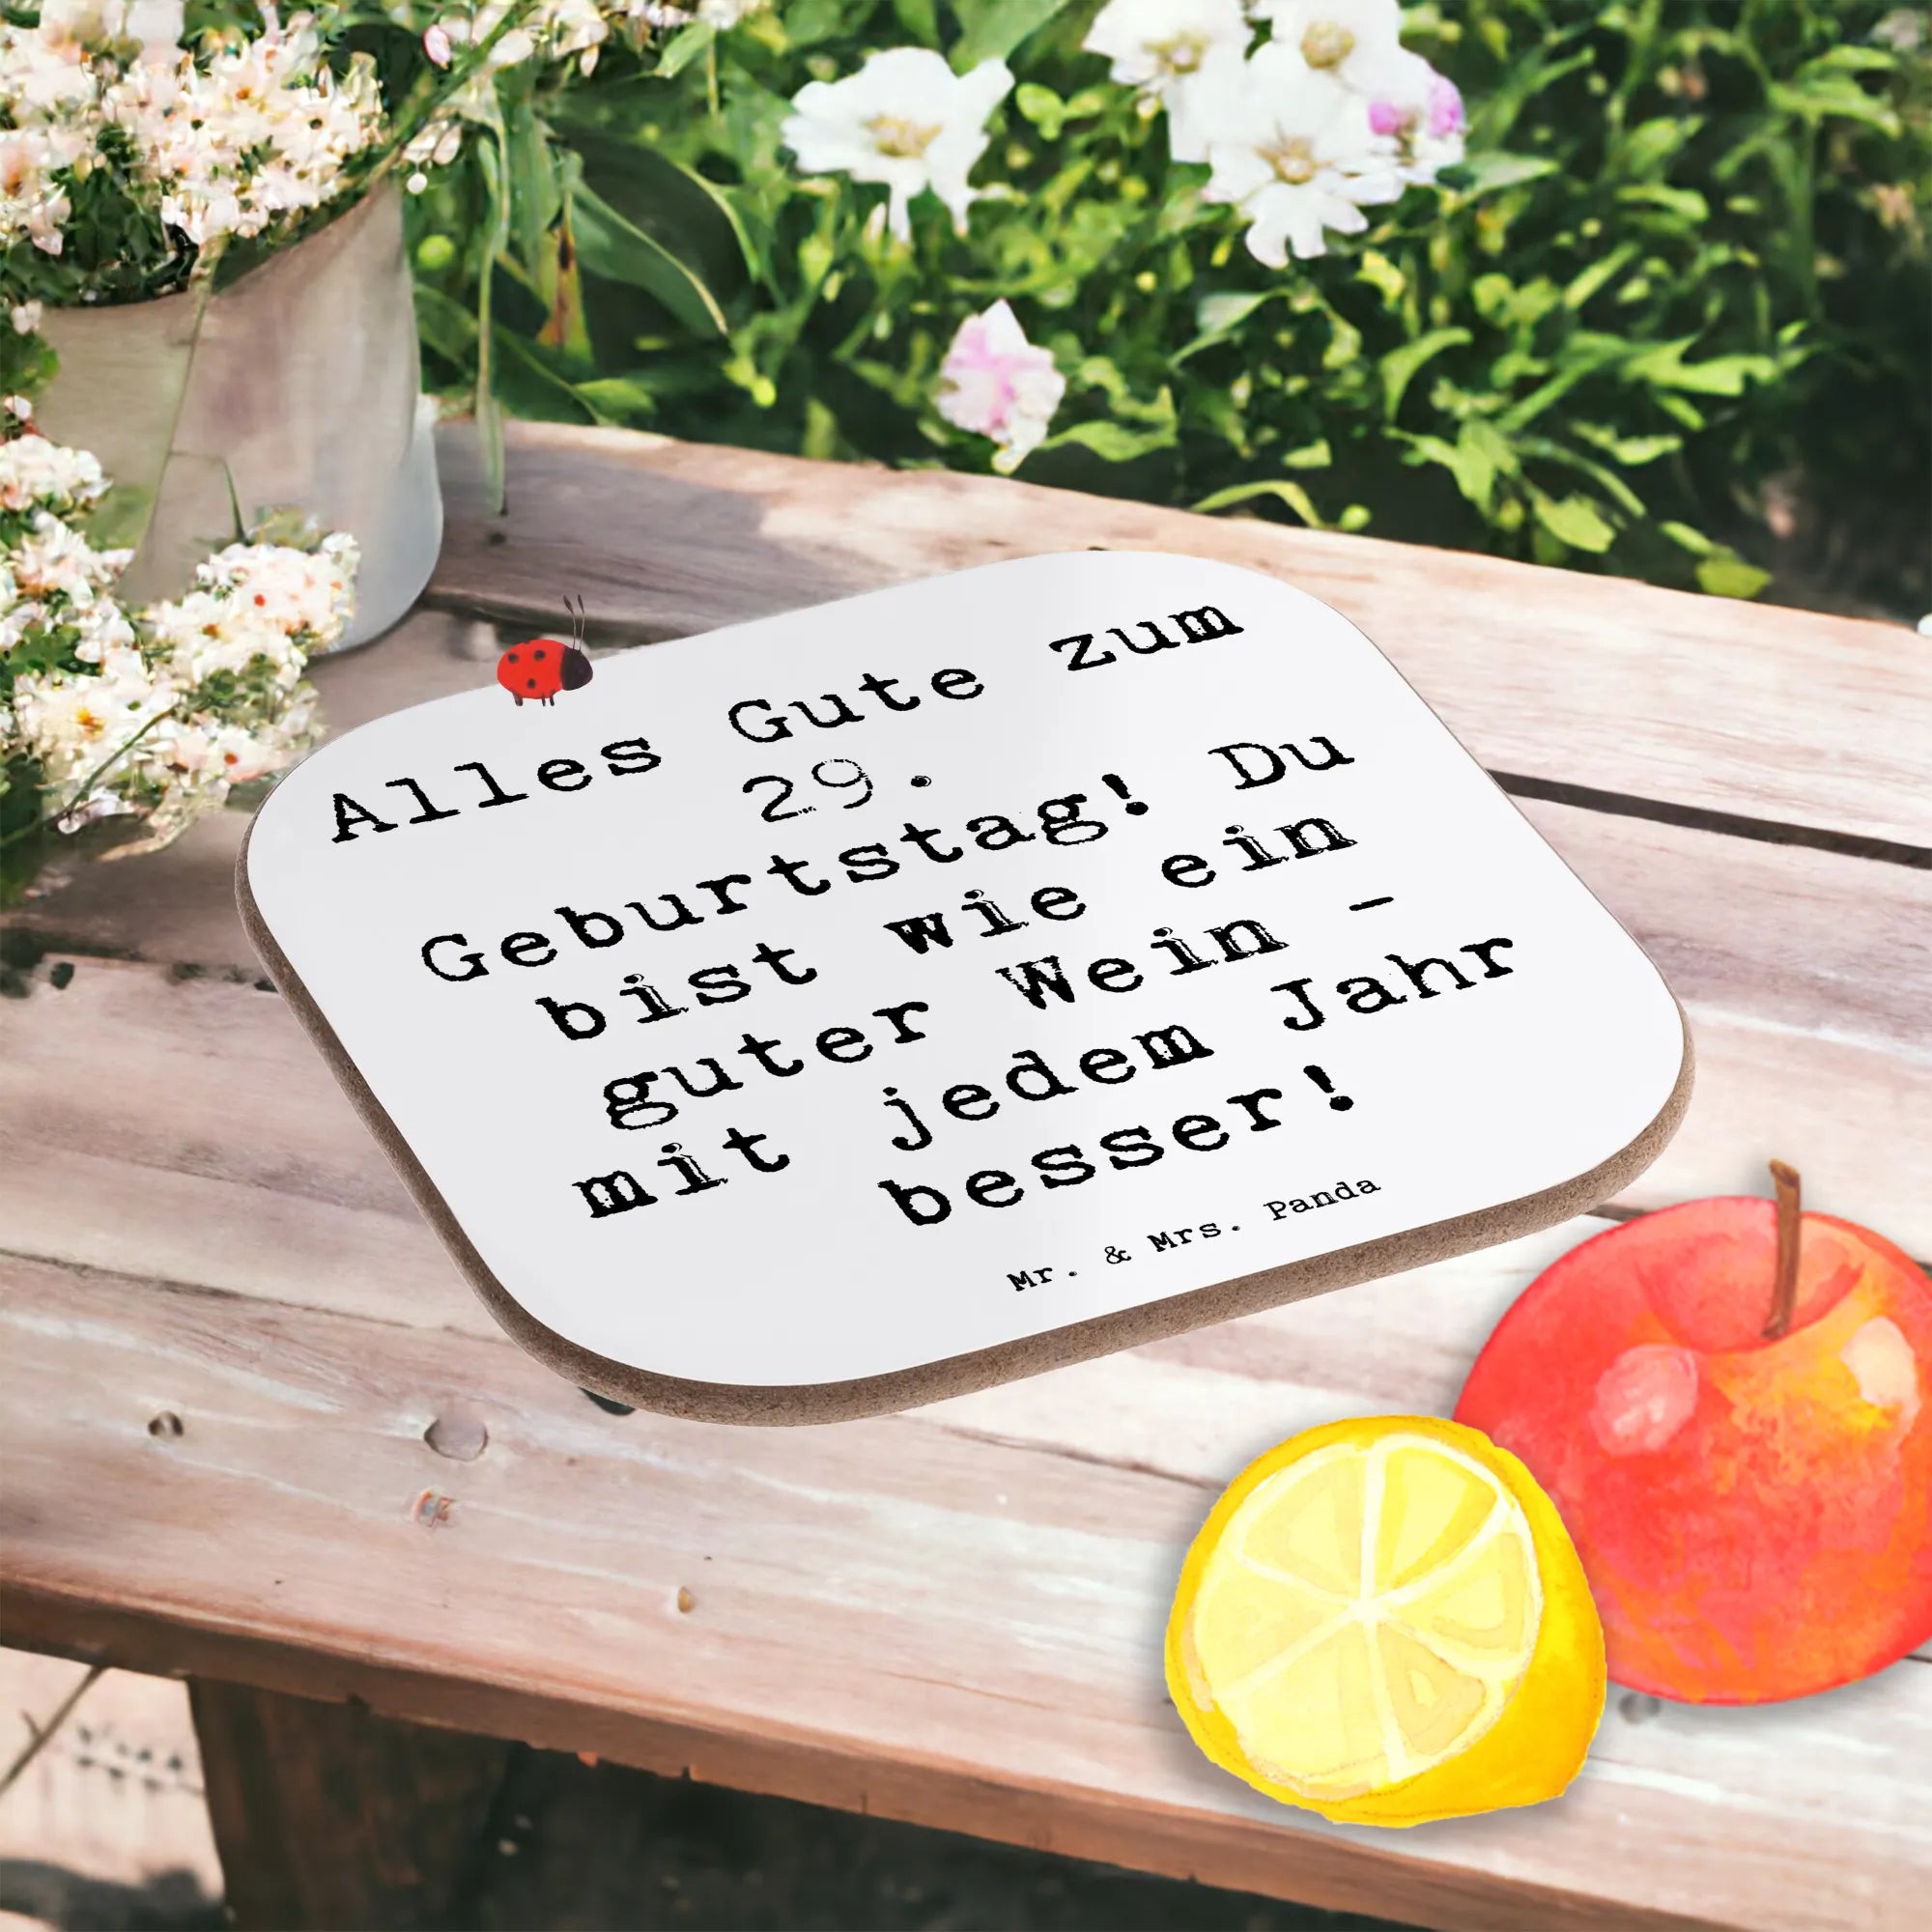 Alles Gute zum
29.
Geburtstag! Du
bist wie ein
guter Wein -
mit jedem Jahr
besser!
Mr. & Mrs. Panda